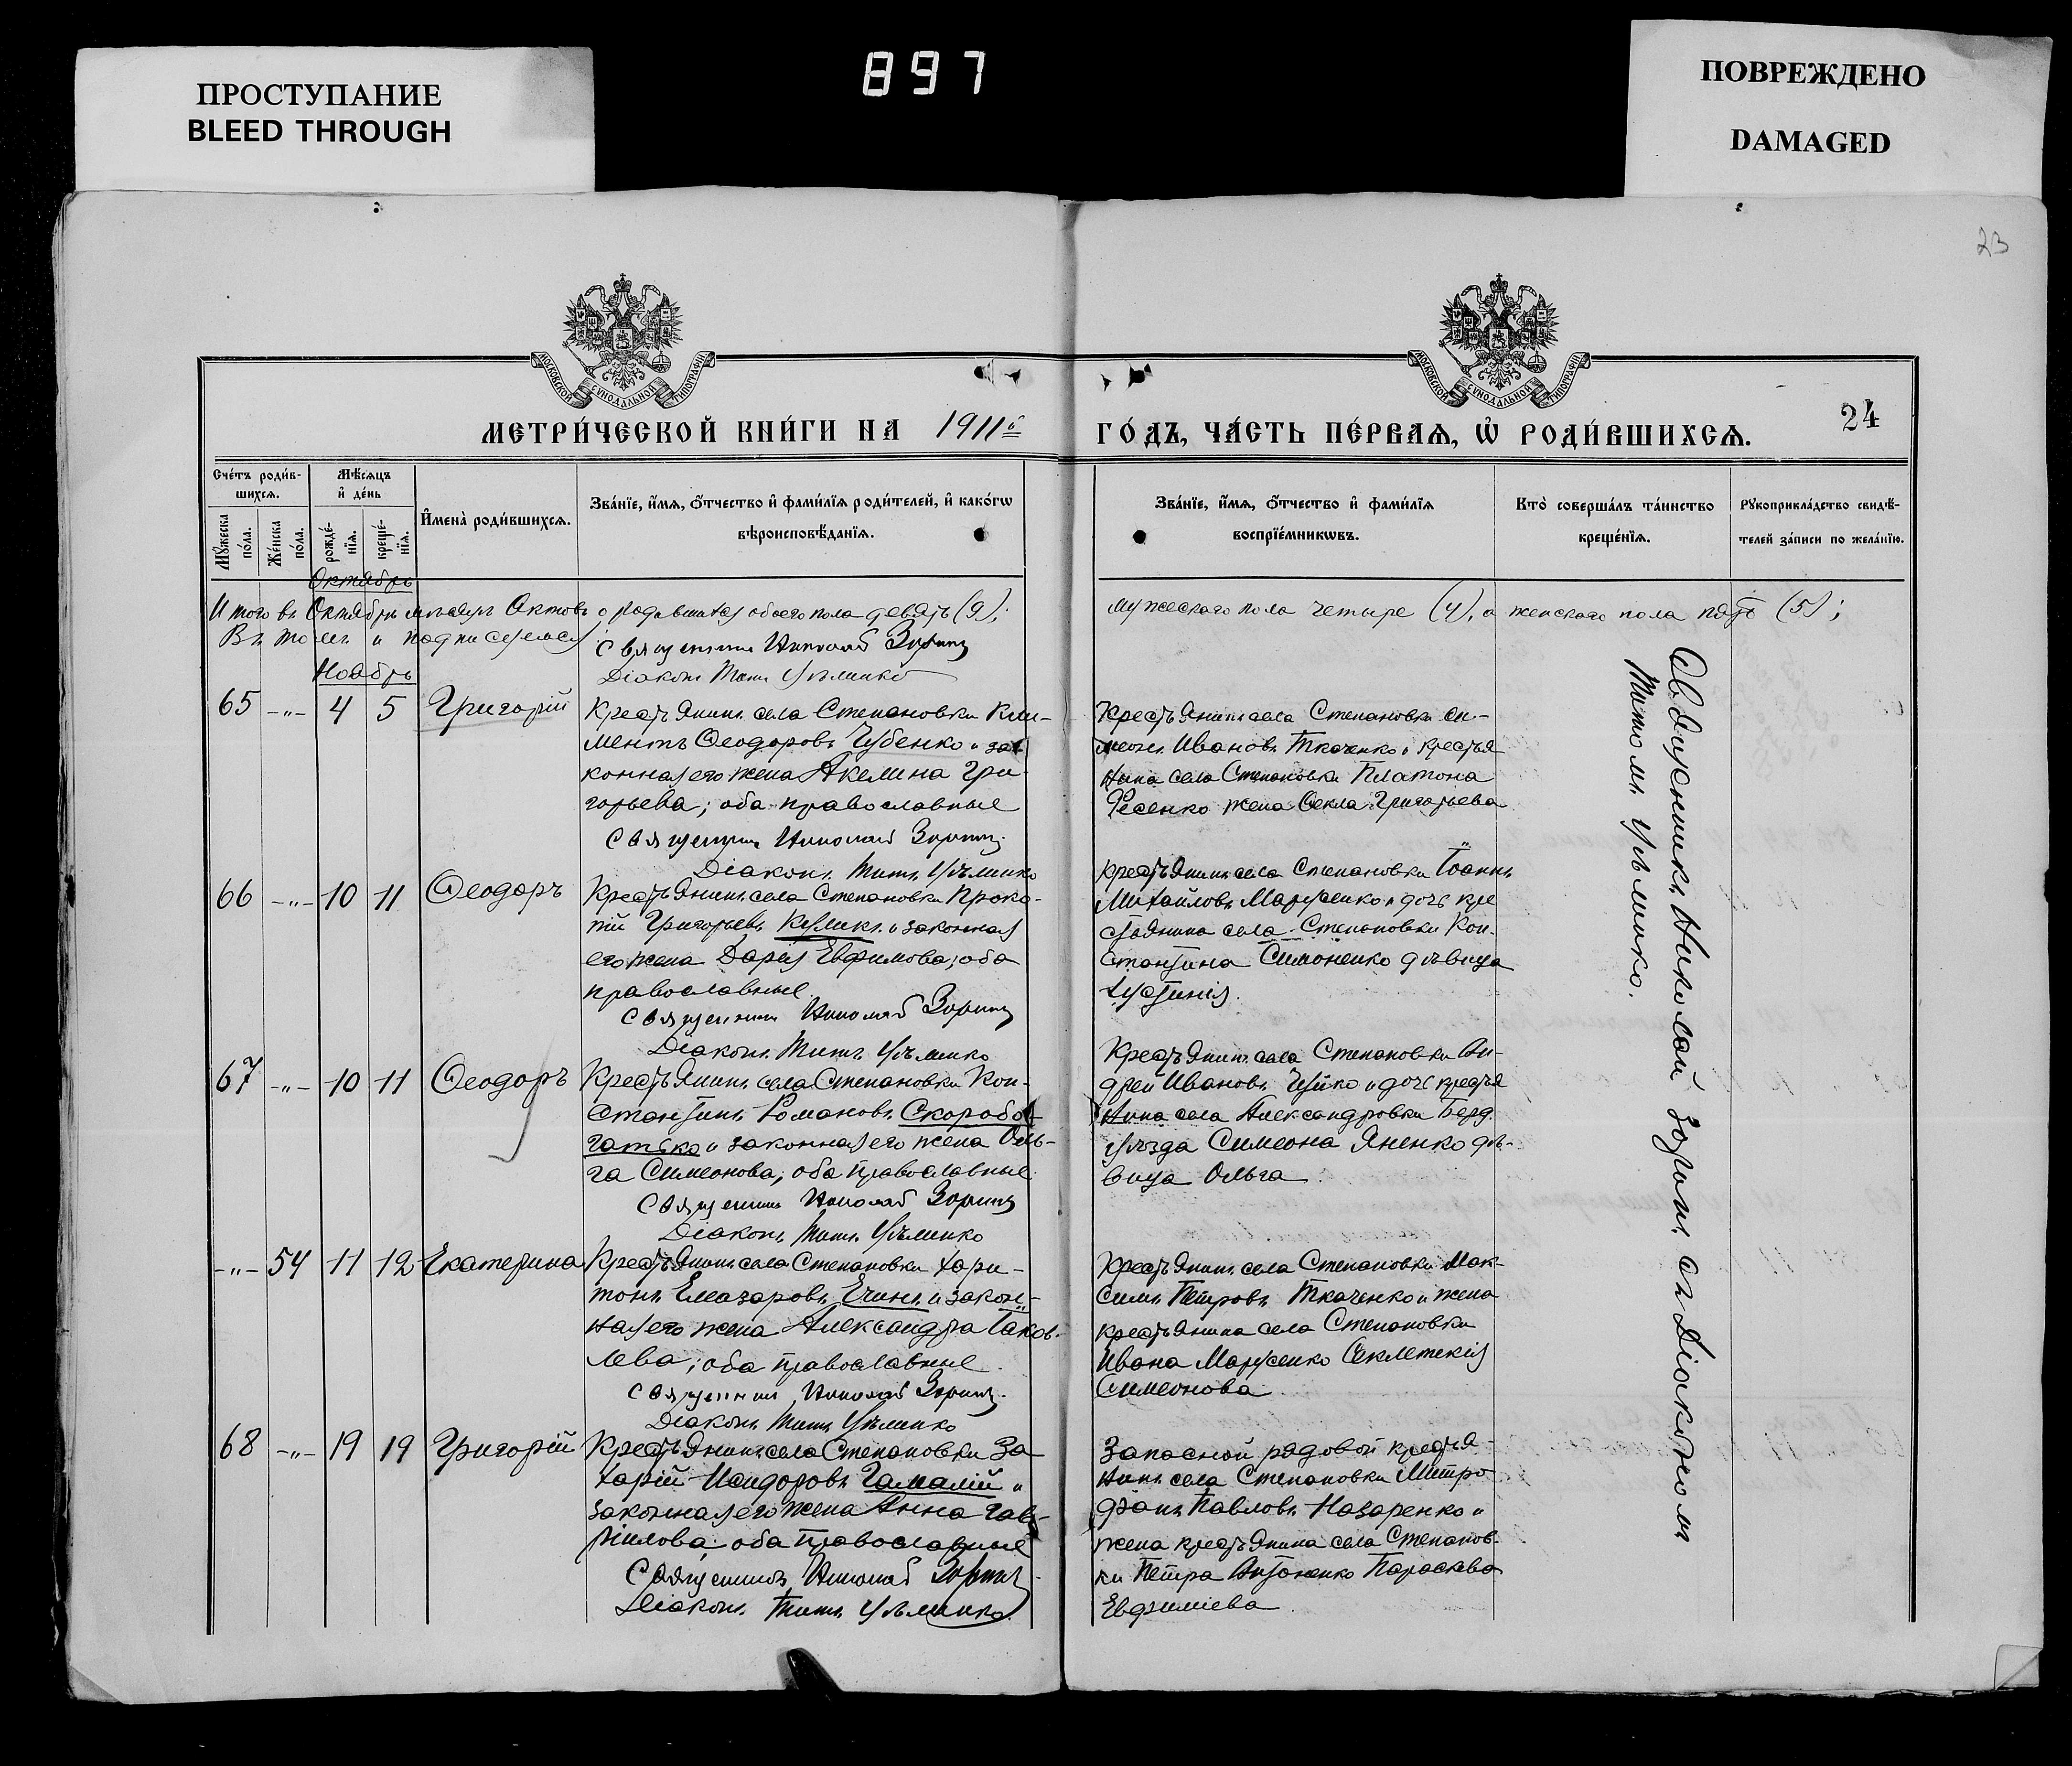 ПРОСТУПАНИЕ
BLEED THROUGH
897
ПОВРЕЖДЕНО
DAMAGED
23
МОСКОВСКОЙ СѴНОДАЛЬНОЙ ТИПОГРАФІИ
МОСКОВСКОЙ СѴНОДАЛЬНОЙ ТИПОГРАФІИ
МЕТРИ́ЧЕСКОЙ КНИ́ГИ НА 1911й
ГО́ДЪ, ЧА́СТЬ ПЕ́РВАѦ, Ѡ҆ РОДИ́ВШИХСѦ.
24
Сче́тъ роди́в-
шихсѧ.
Мꙋ́жеска по́ла.
Же́нска по́ла.
Мѣ́сѧцъ
и҆ де́нь
рожде́-нїѧ.
креще́-нїѧ.
И҆мена̀ роди́вшихсѧ.
Зва́нїе, и҆́мѧ, ѻ҆́тчество и҆ фами́лїѧ роди́телей, и҆ како́гѡ
вѣроисповѣ́данїѧ.
Зва́нїе, и҆́мѧ, ѻ҆́тчество и҆ фами́лїѧ
воспрїе́мникѡвъ.
Кто̀ соверша́лъ та́инство
креще́нїѧ.
Рꙋкоприкла́дство свидѣ́-
телей за́писи по жела́нїю.
Октябрь
Итого въ Октябрѣ мѣсяцѣ родившихся обоего пола девять (9);
мужескаго пола четыре (4), а женскаго пола пять (5);
Въ томъ и подписуемся
Священникъ Николай Зоринъ
Діаконъ Титъ Уѣмлико
Ноябрь
65 -"- 4 5 Григорій
Крестьянинъ села Степановки Кли-
ментъ Ѳеодоровъ Чубенко и за-
конная его жена Акелина Гри-
горьева; оба православные
Священникъ Николай Зоринъ
Діаконъ Титъ
Крестьянинъ села Степановки Си-
меонъ Ивановъ Ткаченко и крестья
нина села Степановки Платона
Фесенко жена Ѳекла Григорьева
66 -"- 10 11 Ѳеодоръ
Крестьянинъ села Степановки Проко-
пій Григорьевъ Куликъ и законная
его жена Дарія Евфимова; оба
православные
Священникъ Николай Зоринъ
Діаконъ Титъ
Крестьянинъ села Степановки Іоаннъ
Михайловъ Марусенко и дочь кре
стьянина села Степановки Кон-
стантина Симоненко дѣвица
Іустинія.
67 -"- 10 11 Ѳеодоръ
Крестьянинъ села Степановки Кон-
стантинъ Романовъ Скоробо-
гатько и законная его жена Оль-
га Симеонова, оба православные
Священникъ Николай Зоринъ
Діаконъ Титъ
Крестьянинъ села Степановки Ан-
дрей Ивановъ Чуйко и дочь крестья
нина села Александровки Берд.
уѣзда Симеона Яненко дѣ-
вица Ольга
-"- 54 11 12 Екатерина
Крестьянинъ села Степановки Хари-
тонъ Елеазаровъ Ечинъ и закон-
ная его жена Александра Іаков-
лева; оба православные
Священникъ Николай Зоринъ
Діаконъ Титъ
Крестьянинъ села Степановки Мак-
симъ Петровъ Ткаченко и жена
крестьянина села Степановки
Ивана Марусенко Секлетекія
Симеонова
68 -"- 19 19 Григорій
Крестьянинъ села Степановки За
харій Исидоровъ Гамалій и
законная его жена Анна Гав-
ріилова; оба православные
Священникъ Николай Зоринъ
Діаконъ Титъ
Запасной рядовой крестья-
нинъ села Степановки Митро
фанъ Павловъ Назаренко и
жена крестьянина села Степанов-
ки Петра Антоненко Параскева
Евфиміева
Священникъ Николай Зоринъ съ Діакономъ
Титомъ